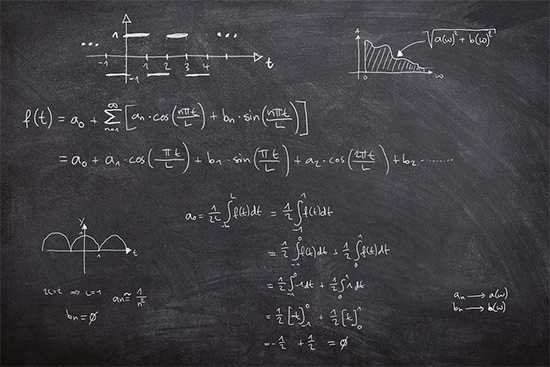 1
... ...
-1 1 2 3 4 t
-1
A √a(ω)² + b(ω)²
0 ω
f(t) = a₀ + ∞∑n=1 [aₙ·cos(nπt/L) + bₙ·sin(nπt/L)]
= a₀ + a₁·cos(πt/L) + b₁·sin(πt/L) + a₂·cos(2πt/L) + b₂·.......
a₀ = 1/2L ∫_-L^L f(t)dt = 1/2 ∫_-1^1 f(t)dt
= 1/2 ∫_-1^0 f(t)dt + 1/2 ∫_0^1 f(t)dt
= 1/2 ∫_-1^0 -1dt + 1/2 ∫_0^1 1dt
= 1/2 [-t]_-1^0 + 1/2 [t]_0^1
= -1/2 + 1/2 = ∅
y
1
1 t
2L=2 ⇒ L=1 aₙ ≅ 1/n²
bₙ = ∅
aₙ → a(ω)
bₙ → b(ω)